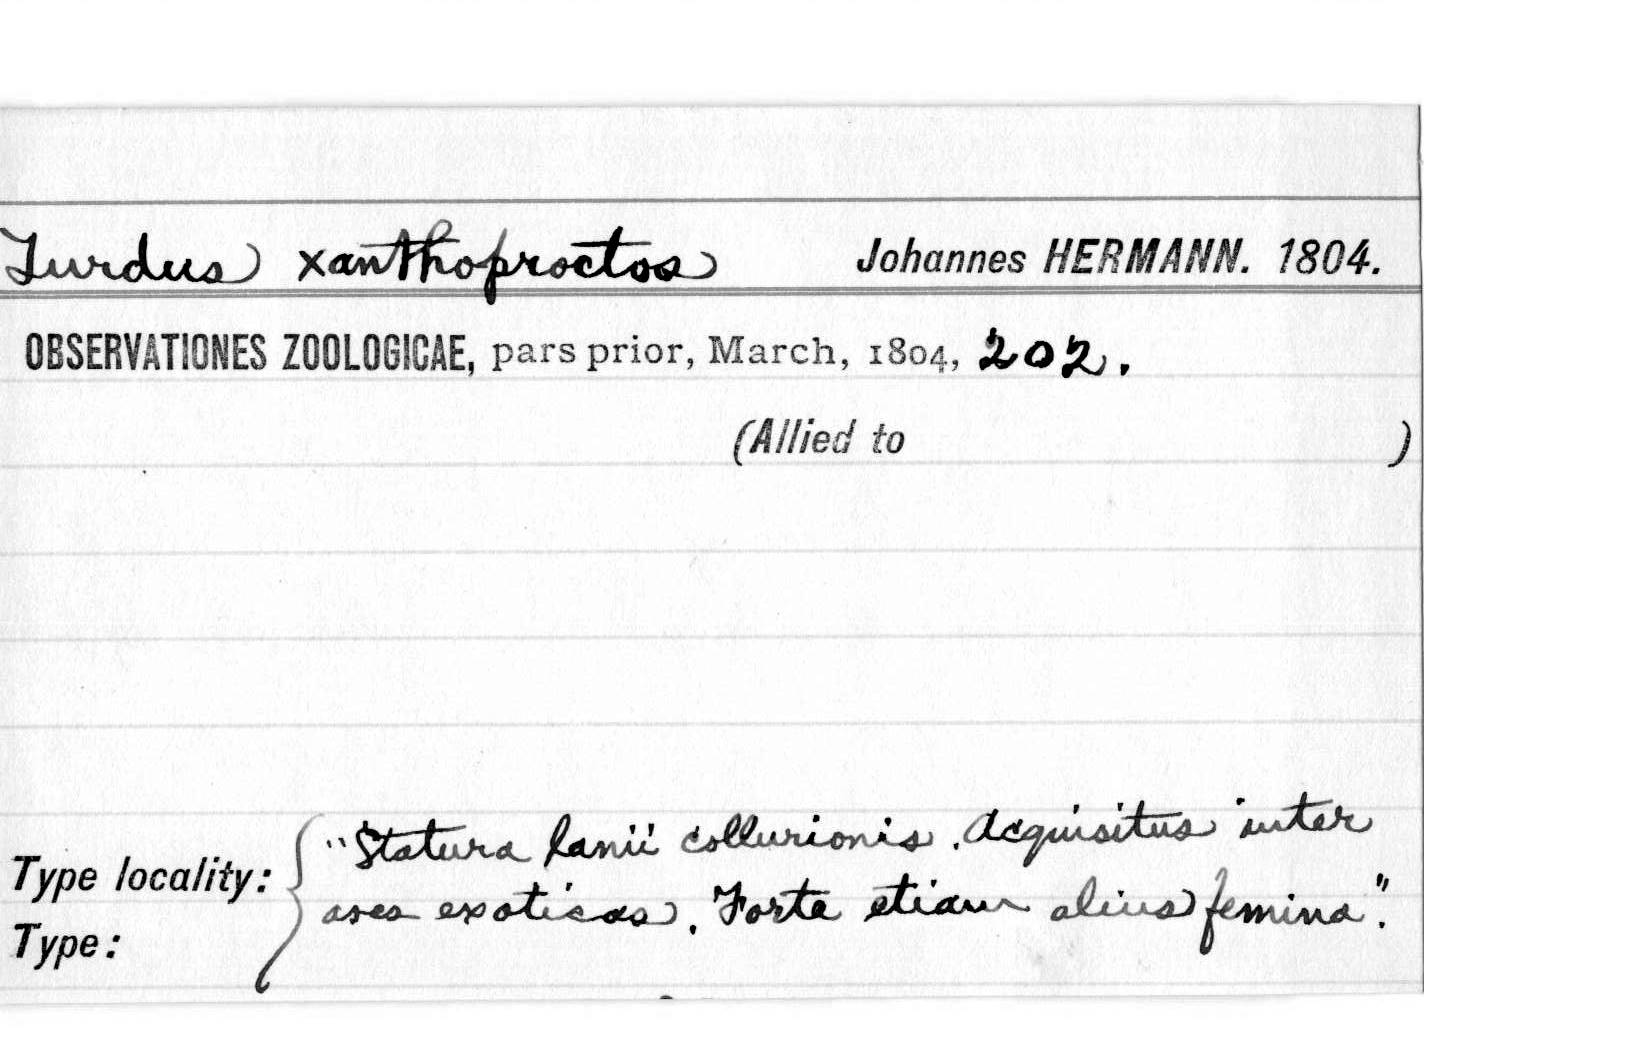 Turdus xanthoproctos Johannes HERMANN. 1804.
OBSERVATIONES ZOOLOGICAE, pars prior, March, 1804, 202.
(Allied to )
Type locality: "Statura lanii collurionis. Acquisitus inter
Type: aves exoticas. Forte etiam alius femina".